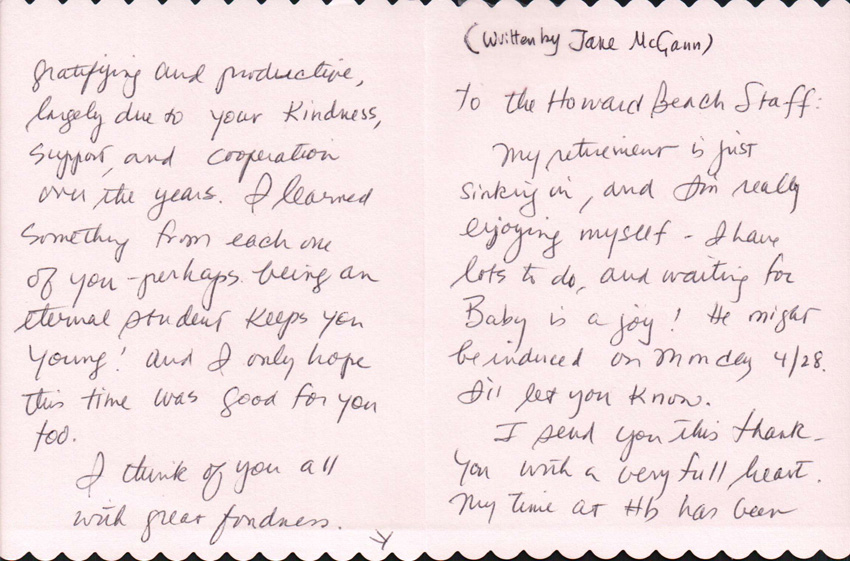 (Written by Jane McGann)
To the Howard Beach Staff:
My retirement is just
sinking in, and I'm really
enjoying myself - I have
lots to do, and waiting for
Baby is a joy! He might
be induced on Monday 4/28.
I'll let you know.
I send you this thank-
you with a very full heart.
My time at HB has been
gratifying and productive,
largely due to your kindness,
support, and cooperation
over the years. I learned
something from each one
of you - perhaps being an
eternal student keeps you
young! and I only hope
this time was good for you
too.
I think of you all
with great fondness.